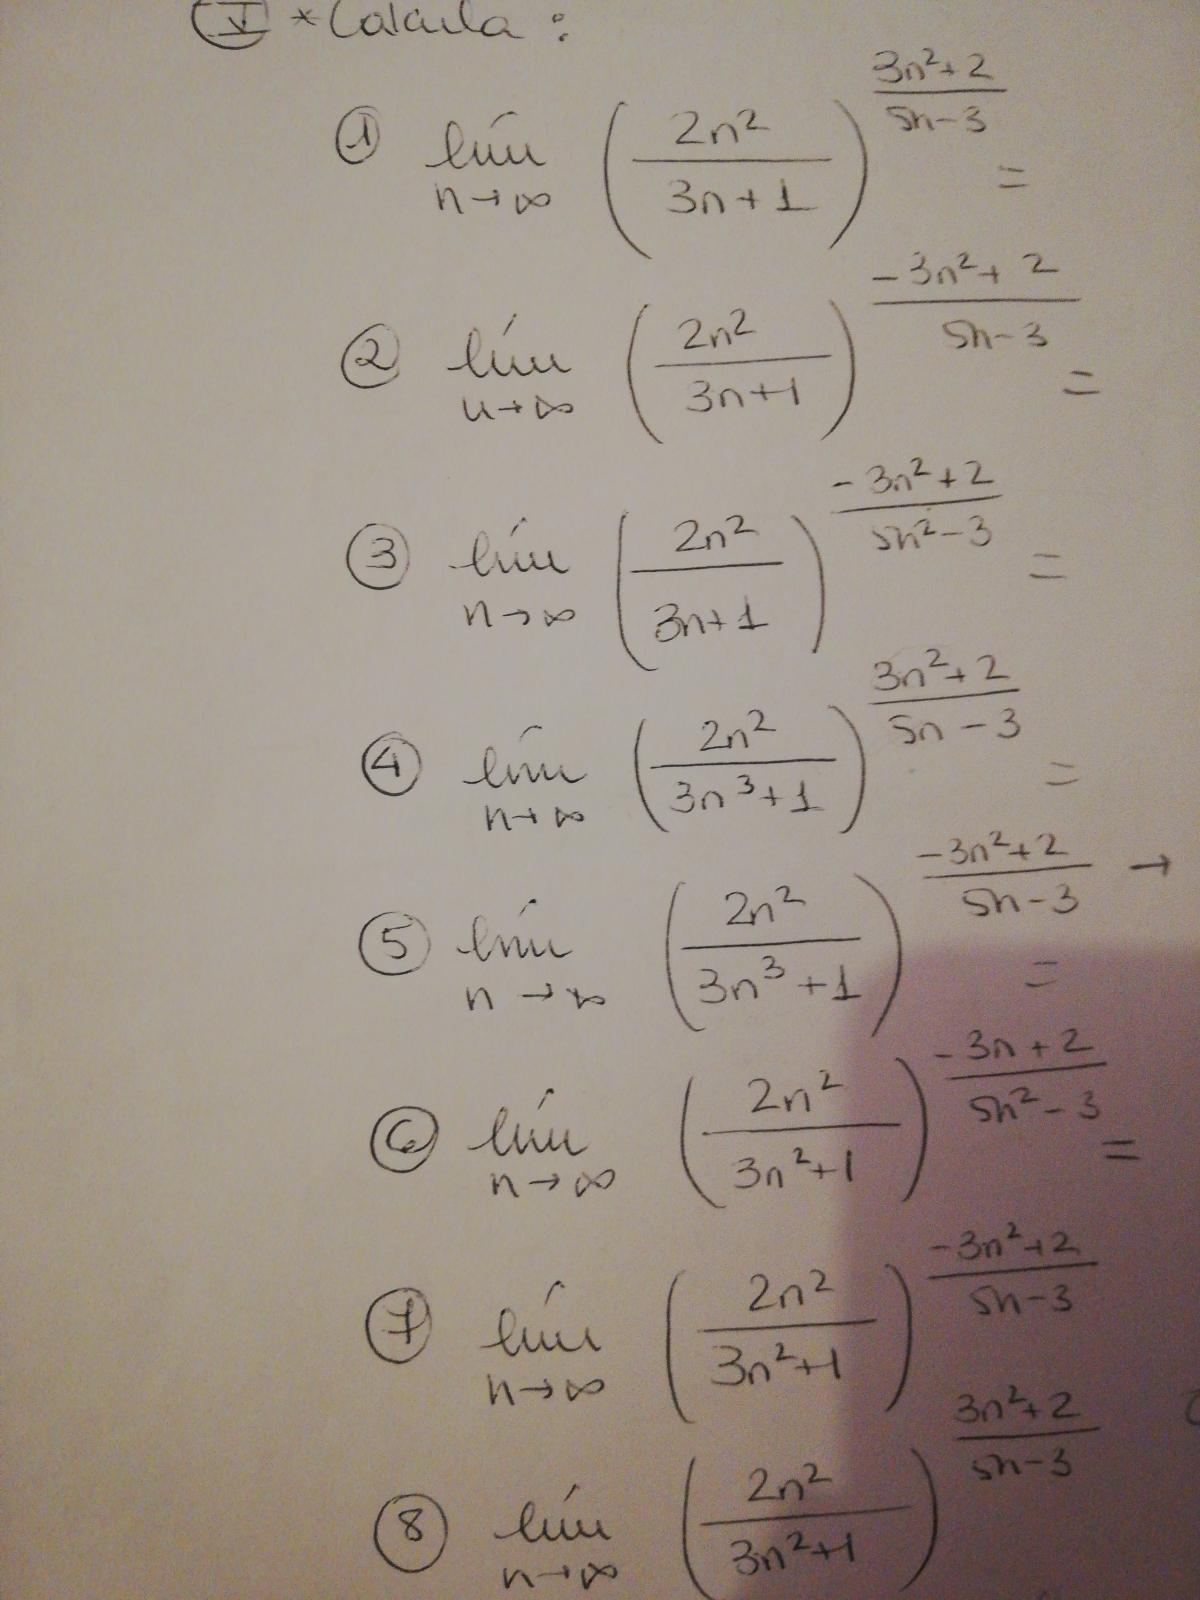 Ⅳ * Calcula :
① lím n→∞ (2n² / 3n+1)^(3n²+2 / 5n-3) =
② lím n→∞ (2n² / 3n+1)^(-3n²+2 / 5n-3) =
③ lím n→∞ (2n² / 3n+1)^(-3n²+2 / 5n²-3) =
④ lím n→∞ (2n² / 3n³+1)^(3n²+2 / 5n-3) =
⑤ lím n→∞ (2n² / 3n³+1)^(-3n²+2 / 5n-3) → =
⑥ lím n→∞ (2n² / 3n²+1)^(-3n+2 / 5n²-3) =
⑦ lím n→∞ (2n² / 3n²+1)^(-3n²+2 / 5n-3)
⑧ lím n→∞ (2n² / 3n²+1)^(3n²+2 / 5n-3)